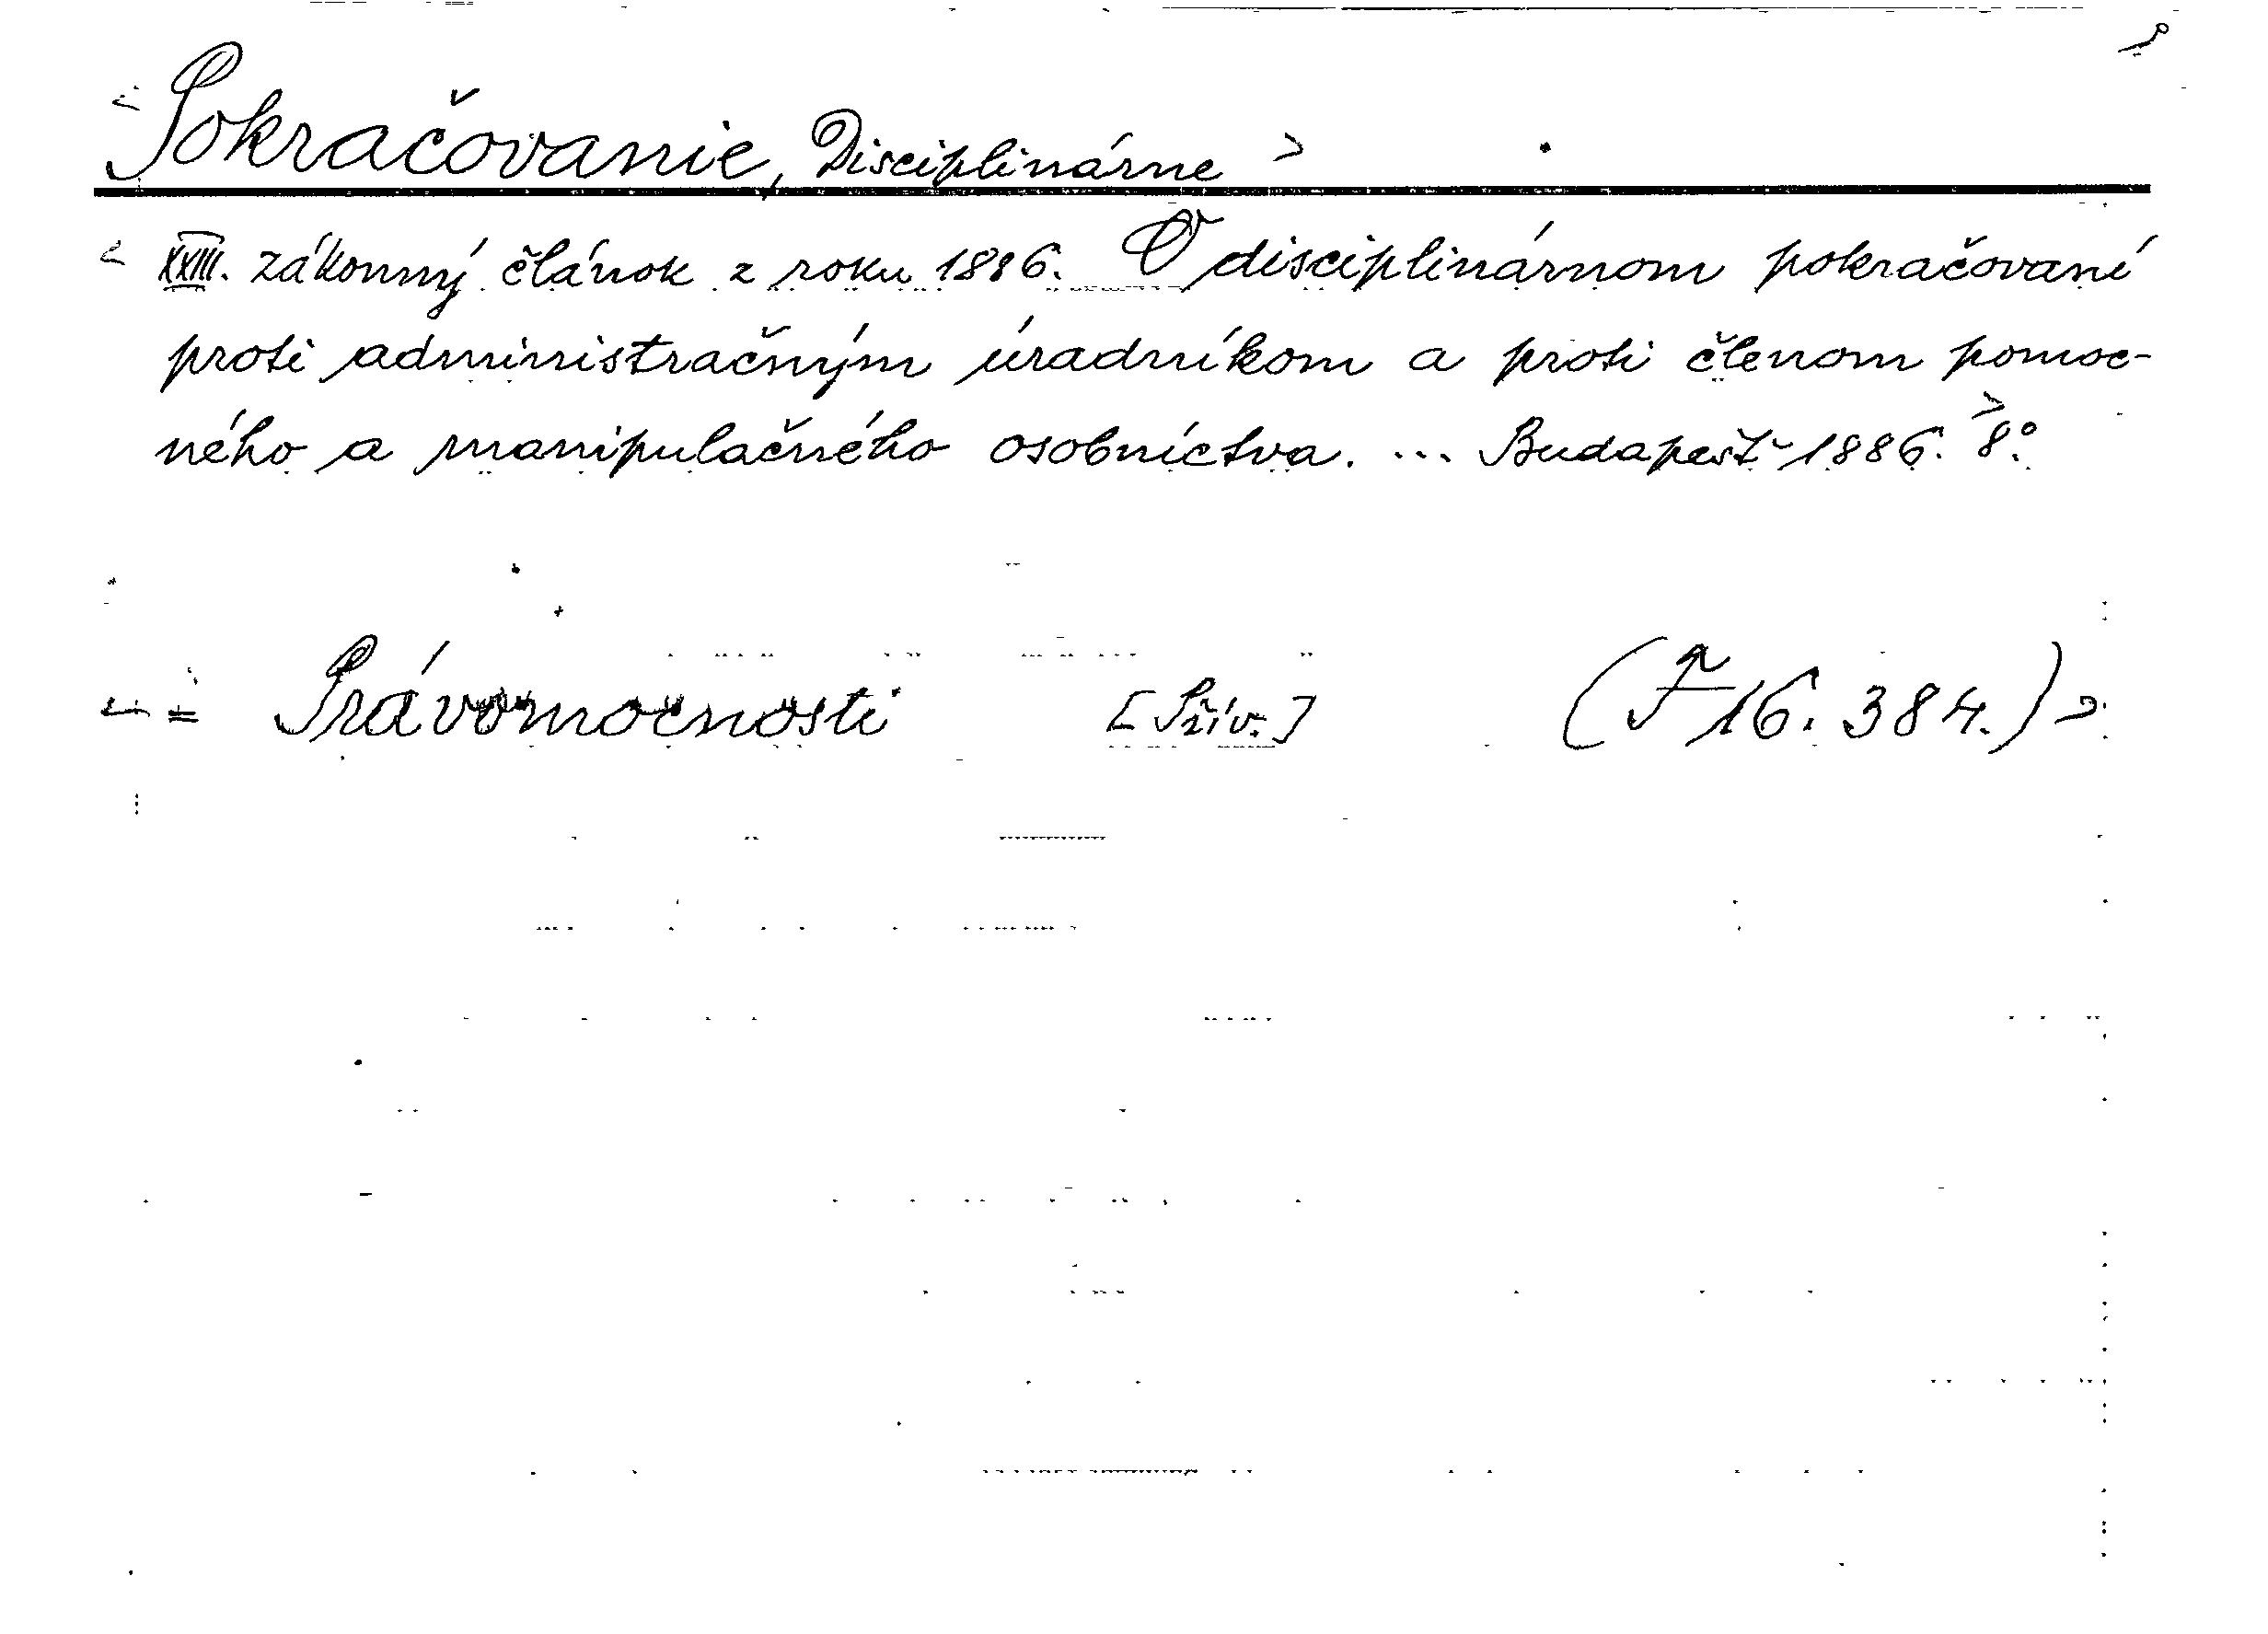 < Pokračovanie, Disciplinárne >
< XXIII. zákonný článok z roku 1886. O disciplinárnom pokračovaní
proti administračným úradníkom a proti členom pomoc-
ného a manipulačného osobníctva. ... Budapešť 1886. 8°.
= Právomocnosti [Slov.] (F 16.384.)